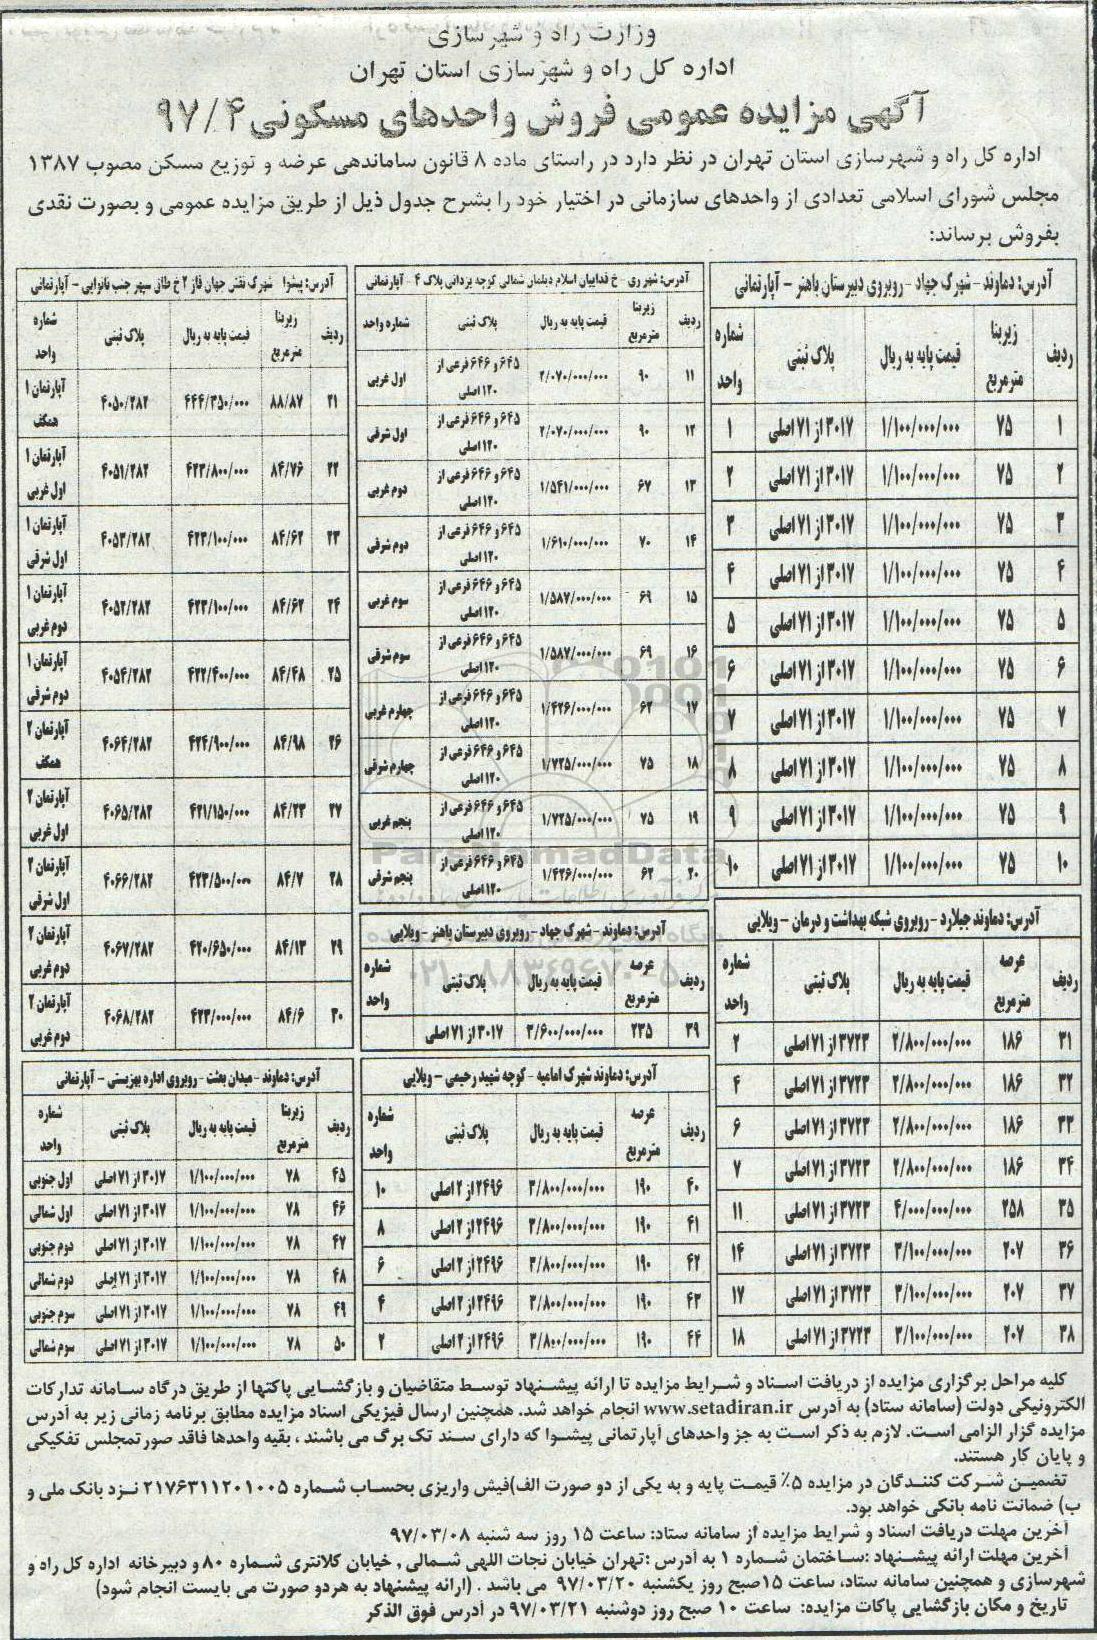 وزارت راه و شهرسازی
اداره کل راه و شهرسازی استان تهران
آگهی مزایده عمومی فروش واحدهای مسکونی ۹۷/۴
اداره کل راه و شهرسازی استان تهران در نظر دارد در راستای ماده ۸ قانون ساماندهی عرضه و توزیع مسکن مصوب ۱۳۸۷
مجلس شورای اسلامی تعدادی از واحدهای سازمانی در اختیار خود را بشرح جدول ذیل از طریق مزایده عمومی و بصورت نقدی
بفروش برساند:
آدرس: دماوند - شهرک جهاد - روبروی دبیرستان باهنر - آپارتمانی
ردیف زیربنا مترمربع قیمت پایه به ریال پلاک ثبتی شماره واحد
۱ ۷۵ ۱/۱۰۰/۰۰۰/۰۰۰ ۳۰۱۷ از ۷۱ اصلی ۱
۲ ۷۵ ۱/۱۰۰/۰۰۰/۰۰۰ ۳۰۱۷ از ۷۱ اصلی ۲
۳ ۷۵ ۱/۱۰۰/۰۰۰/۰۰۰ ۳۰۱۷ از ۷۱ اصلی ۳
۴ ۷۵ ۱/۱۰۰/۰۰۰/۰۰۰ ۳۰۱۷ از ۷۱ اصلی ۴
۵ ۷۵ ۱/۱۰۰/۰۰۰/۰۰۰ ۳۰۱۷ از ۷۱ اصلی ۵
۶ ۷۵ ۱/۱۰۰/۰۰۰/۰۰۰ ۳۰۱۷ از ۷۱ اصلی ۶
۷ ۷۵ ۱/۱۰۰/۰۰۰/۰۰۰ ۳۰۱۷ از ۷۱ اصلی ۷
۸ ۷۵ ۱/۱۰۰/۰۰۰/۰۰۰ ۳۰۱۷ از ۷۱ اصلی ۸
۹ ۷۵ ۱/۱۰۰/۰۰۰/۰۰۰ ۳۰۱۷ از ۷۱ اصلی ۹
۱۰ ۷۵ ۱/۱۰۰/۰۰۰/۰۰۰ ۳۰۱۷ از ۷۱ اصلی ۱۰
آدرس: شهرری - خ فداییان اسلام دیلمان شمالی کوچه یزدانی پلاک ۴ - آپارتمانی
ردیف زیربنا مترمربع قیمت پایه به ریال پلاک ثبتی شماره واحد
۱۱ ۹۰ ۲/۰۷۰/۰۰۰/۰۰۰ ۶۴۵ و ۶۴۶ فرعی از ۱۲۰ اصلی اول غربی
۱۲ ۹۰ ۲/۰۷۰/۰۰۰/۰۰۰ ۶۴۵ و ۶۴۶ فرعی از ۱۲۰ اصلی اول شرقی
۱۳ ۶۷ ۱/۵۴۱/۰۰۰/۰۰۰ ۶۴۵ و ۶۴۶ فرعی از ۱۲۰ اصلی دوم غربی
۱۴ ۷۰ ۱/۶۱۰/۰۰۰/۰۰۰ ۶۴۵ و ۶۴۶ فرعی از ۱۲۰ اصلی دوم شرقی
۱۵ ۶۹ ۱/۵۸۷/۰۰۰/۰۰۰ ۶۴۵ و ۶۴۶ فرعی از ۱۲۰ اصلی سوم غربی
۱۶ ۶۹ ۱/۵۸۷/۰۰۰/۰۰۰ ۶۴۵ و ۶۴۶ فرعی از ۱۲۰ اصلی سوم شرقی
۱۷ ۶۲ ۱/۴۲۶/۰۰۰/۰۰۰ ۶۴۵ و ۶۴۶ فرعی از ۱۲۰ اصلی چهارم غربی
۱۸ ۷۵ ۱/۷۲۵/۰۰۰/۰۰۰ ۶۴۵ و ۶۴۶ فرعی از ۱۲۰ اصلی چهارم شرقی
۱۹ ۷۵ ۱/۷۲۵/۰۰۰/۰۰۰ ۶۴۵ و ۶۴۶ فرعی از ۱۲۰ اصلی پنجم غربی
۲۰ ۶۲ ۱/۴۲۶/۰۰۰/۰۰۰ ۶۴۵ و ۶۴۶ فرعی از ۱۲۰ اصلی پنجم شرقی
آدرس: پیشوا شهرک نقش جهان فاز ۲ خ طاق سپهر جنب نانوایی - آپارتمانی
ردیف زیربنا مترمربع قیمت پایه به ریال پلاک ثبتی شماره واحد
۲۱ ۸۸/۸۷ ۴۴۴/۳۵۰/۰۰۰ ۴۰۵۰/۲۸۲ آپارتمان ۱ همکف
۲۲ ۸۴/۷۶ ۴۲۳/۸۰۰/۰۰۰ ۴۰۵۱/۲۸۲ آپارتمان ۱ اول غربی
۲۳ ۸۴/۶۲ ۴۲۳/۱۰۰/۰۰۰ ۴۰۵۳/۲۸۲ آپارتمان ۱ اول شرقی
۲۴ ۸۴/۶۲ ۴۲۳/۱۰۰/۰۰۰ ۴۰۵۲/۲۸۲ آپارتمان ۱ دوم غربی
۲۵ ۸۴/۴۸ ۴۲۲/۴۰۰/۰۰۰ ۴۰۵۴/۲۸۲ آپارتمان ۱ دوم شرقی
۲۶ ۸۴/۹۸ ۴۲۴/۹۰۰/۰۰۰ ۴۰۶۴/۲۸۲ آپارتمان ۲ همکف
۲۷ ۸۴/۲۳ ۴۲۱/۱۵۰/۰۰۰ ۴۰۶۵/۲۸۲ آپارتمان ۲ اول غربی
۲۸ ۸۴/۷ ۴۲۳/۵۰۰/۰۰۰ ۴۰۶۶/۲۸۲ آپارتمان ۲ اول شرقی
۲۹ ۸۴/۱۳ ۴۲۰/۶۵۰/۰۰۰ ۴۰۶۷/۲۸۲ آپارتمان ۲ دوم غربی
۳۰ ۸۴/۶ ۴۲۳/۰۰۰/۰۰۰ ۴۰۶۸/۲۸۲ آپارتمان ۲ دوم غربی
آدرس: دماوند جیلارد - روبروی شبکه بهداشت و درمان - ویلایی
ردیف عرصه مترمربع قیمت پایه به ریال پلاک ثبتی شماره واحد
۳۱ ۱۸۶ ۲/۸۰۰/۰۰۰/۰۰۰ ۳۷۲۳ از ۷۱ اصلی ۲
۳۲ ۱۸۶ ۲/۸۰۰/۰۰۰/۰۰۰ ۳۷۲۳ از ۷۱ اصلی ۴
۳۳ ۱۸۶ ۲/۸۰۰/۰۰۰/۰۰۰ ۳۷۲۳ از ۷۱ اصلی ۶
۳۴ ۱۸۶ ۲/۸۰۰/۰۰۰/۰۰۰ ۳۷۲۳ از ۷۱ اصلی ۷
۳۵ ۲۵۸ ۴/۰۰۰/۰۰۰/۰۰۰ ۳۷۲۳ از ۷۱ اصلی ۱۱
۳۶ ۲۰۷ ۳/۱۰۰/۰۰۰/۰۰۰ ۳۷۲۳ از ۷۱ اصلی ۱۴
۳۷ ۲۰۷ ۳/۱۰۰/۰۰۰/۰۰۰ ۳۷۲۳ از ۷۱ اصلی ۱۷
۳۸ ۲۰۷ ۳/۱۰۰/۰۰۰/۰۰۰ ۳۷۲۳ از ۷۱ اصلی ۱۸
آدرس: دماوند - شهرک جهاد - روبروی دبیرستان باهنر - ویلایی
ردیف عرصه مترمربع قیمت پایه به ریال پلاک ثبتی شماره واحد
۳۹ ۲۳۵ ۳/۶۰۰/۰۰۰/۰۰۰ ۳۰۱۷ از ۷۱ اصلی
آدرس: دماوند شهرک امامیه - کوچه شهید رحیمی - ویلایی
ردیف عرصه مترمربع قیمت پایه به ریال پلاک ثبتی شماره واحد
۴۰ ۱۹۰ ۳/۸۰۰/۰۰۰/۰۰۰ ۲۴۹۶ از ۲ اصلی ۱۰
۴۱ ۱۹۰ ۳/۸۰۰/۰۰۰/۰۰۰ ۲۴۹۶ از ۲ اصلی ۸
۴۲ ۱۹۰ ۳/۸۰۰/۰۰۰/۰۰۰ ۲۴۹۶ از ۲ اصلی ۶
۴۳ ۱۹۰ ۳/۸۰۰/۰۰۰/۰۰۰ ۲۴۹۶ از ۲ اصلی ۴
۴۴ ۱۹۰ ۳/۸۰۰/۰۰۰/۰۰۰ ۲۴۹۶ از ۲ اصلی ۲
آدرس: دماوند - میدان بعثت - روبروی اداره بهزیستی - آپارتمانی
ردیف زیربنا مترمربع قیمت پایه به ریال پلاک ثبتی شماره واحد
۴۵ ۷۸ ۱/۱۰۰/۰۰۰/۰۰۰ ۳۰۱۷ از ۷۱ اصلی اول جنوبی
۴۶ ۷۸ ۱/۱۰۰/۰۰۰/۰۰۰ ۳۰۱۷ از ۷۱ اصلی اول شمالی
۴۷ ۷۸ ۱/۱۰۰/۰۰۰/۰۰۰ ۳۰۱۷ از ۷۱ اصلی دوم جنوبی
۴۸ ۷۸ ۱/۱۰۰/۰۰۰/۰۰۰ ۳۰۱۷ از ۷۱ اصلی دوم شمالی
۴۹ ۷۸ ۱/۱۰۰/۰۰۰/۰۰۰ ۳۰۱۷ از ۷۱ اصلی سوم جنوبی
۵۰ ۷۸ ۱/۱۰۰/۰۰۰/۰۰۰ ۳۰۱۷ از ۷۱ اصلی سوم شمالی
ParsNamadData
۰۲۱-۸۸۳۴۹۶۷۰-۵
کلیه مراحل برگزاری مزایده از دریافت اسناد و شرایط مزایده تا ارائه پیشنهاد توسط متقاضیان و بازگشایی پاکتها از طریق درگاه سامانه تدارکات
الکترونیکی دولت (سامانه ستاد) به آدرس www.setadiran.ir انجام خواهد شد. همچنین ارسال فیزیکی اسناد مزایده مطابق برنامه زمانی زیر به آدرس
مزایده گزار الزامی است. لازم به ذکر است به جز واحدهای آپارتمانی پیشوا که دارای سند تک برگ می باشند ، بقیه واحدها فاقد صورتمجلس تفکیکی
و پایان کار هستند.
تضمین شرکت کنندگان در مزایده ۵٪ قیمت پایه و به یکی از دو صورت الف)فیش واریزی بحساب شماره ۲۱۷۶۳۱۱۲۰۱۰۰۵ نزد بانک ملی و
ب) ضمانت نامه بانکی خواهد بود.
آخرین مهلت دریافت اسناد و شرایط مزایده از سامانه ستاد: ساعت ۱۵ روز سه شنبه ۹۷/۰۳/۰۸
آخرین مهلت ارائه پیشنهاد :ساختمان شماره ۱ به آدرس :تهران خیابان نجات اللهی شمالی , خیابان کلانتری شماره ۸۰ و دبیرخانه اداره کل راه و
شهرسازی و همچنین سامانه ستاد، ساعت ۱۵صبح روز یکشنبه ۹۷/۰۳/۲۰ می باشد . (ارائه پیشنهاد به هردو صورت می بایست انجام شود)
تاریخ و مکان بازگشایی پاکات مزایده: ساعت ۱۰ صبح روز دوشنبه ۹۷/۰۳/۲۱ در آدرس فوق الذکر